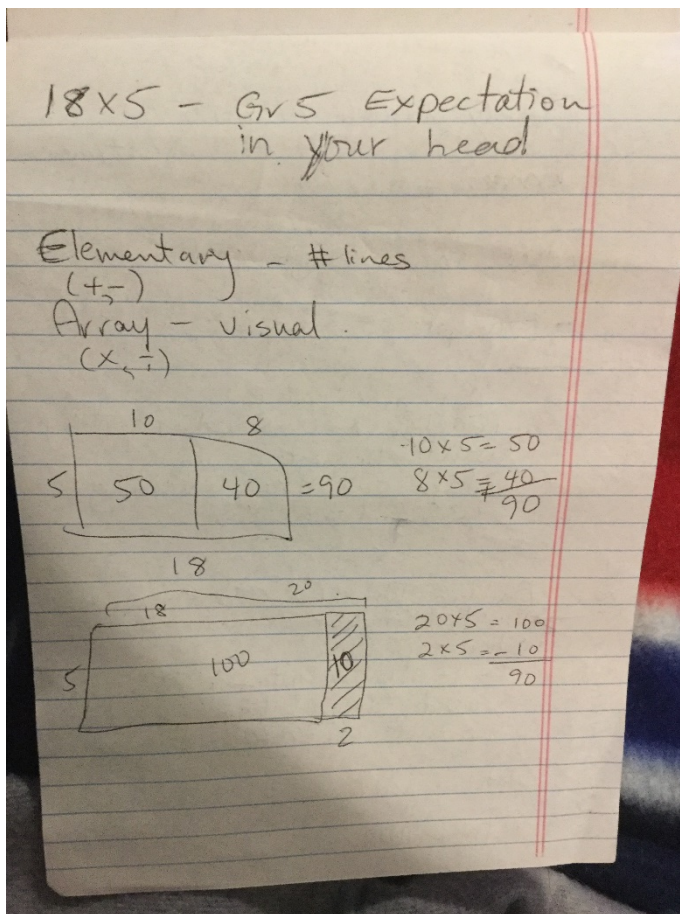 18×5 - Gr 5 Expectation
in your head
Elementary - # lines
(+,-)
Array - visual.
(×,÷)
10 8
5 50 40 =90
10×5= 50
8×5= 40
+
90
18
20
18
5 100 10
2
20×5 = 100
2×5 = -10
90